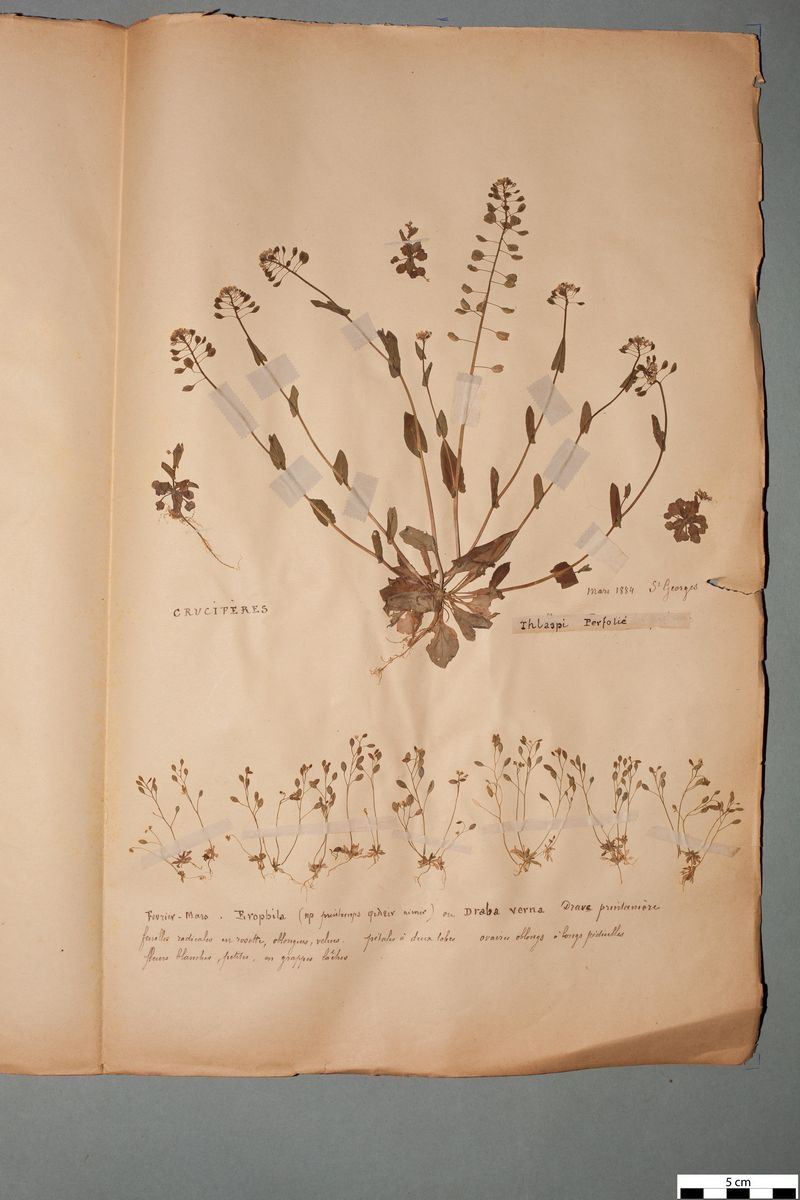 CRUCIFÈRES
Mars 1884 St Georges
Thlaspi Perfolié
Fevrier-Mars. Erophila (ηρ printemps φιλειν aimer) ou Draba verna Drave printanière
feuilles radicales en rosette, oblongues, velues. pétales à deux lobes ovaires oblongs à longs pédicelles
fleurs blanches, petites, en grappes lâches
5 cm